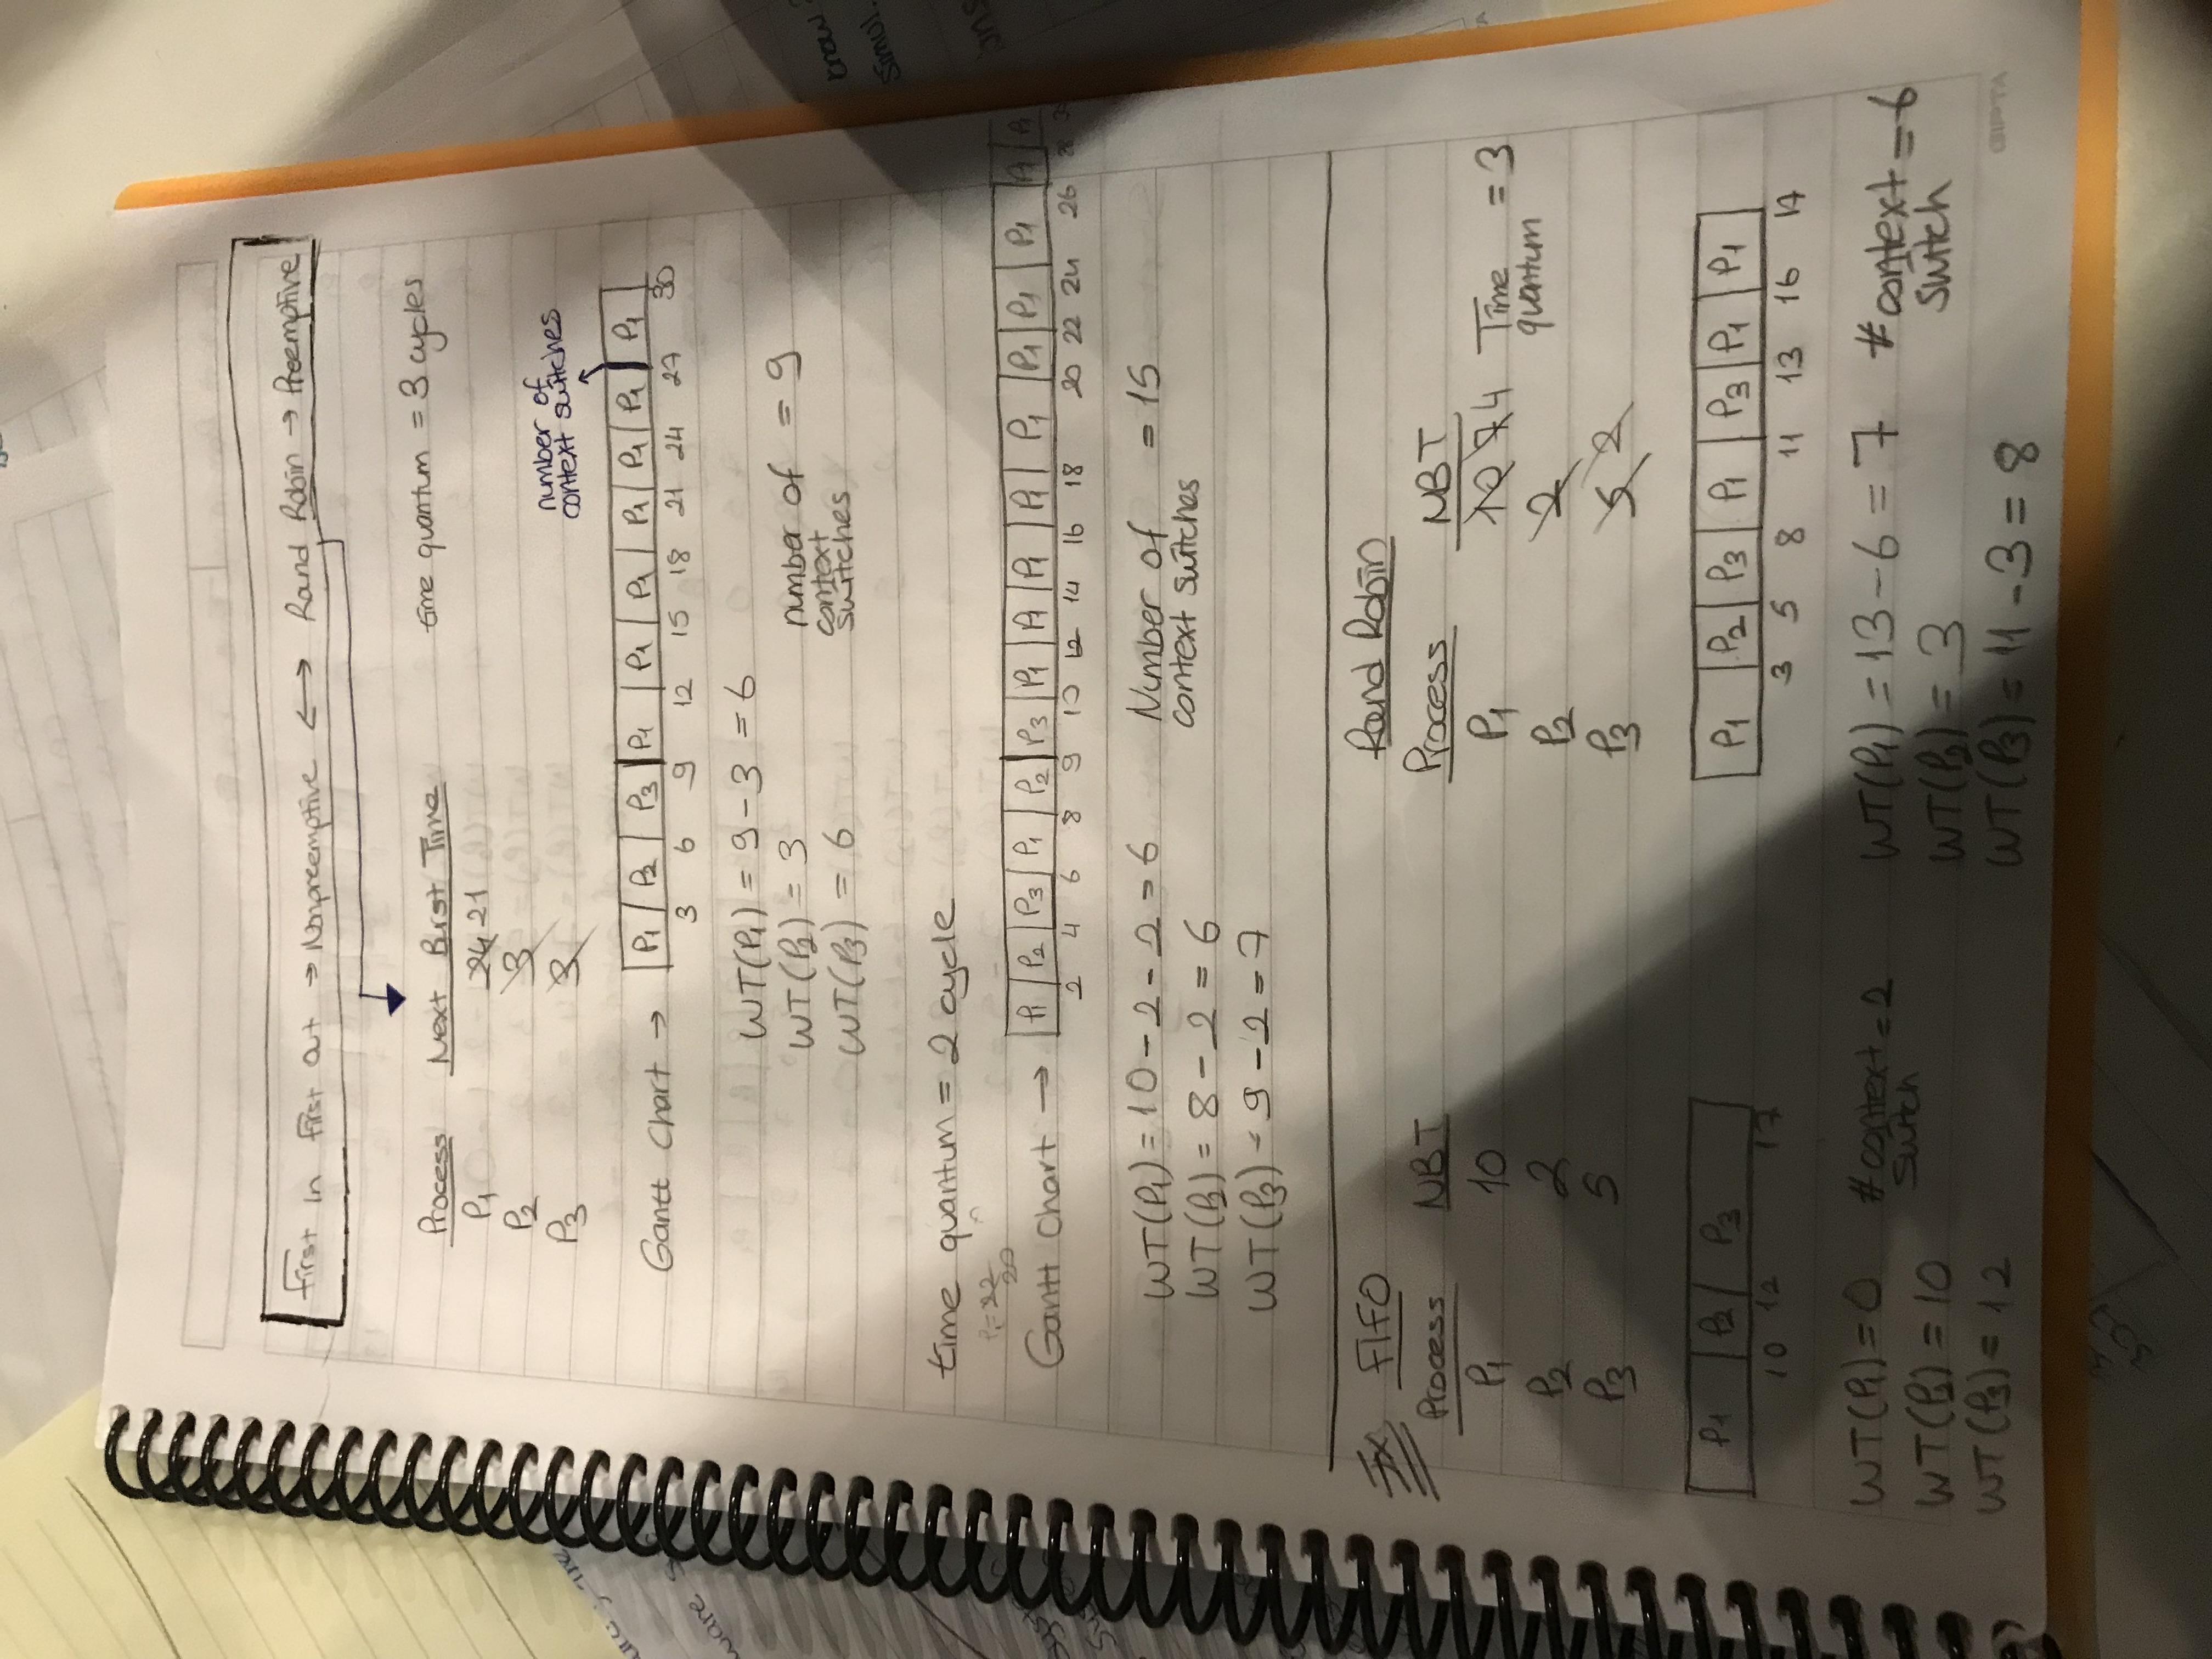 First In First Out → Nonpreemptive ↔ Round Robin → Preemptive
Process Next Burst Time time quantum = 3 cycles
P1 24 21
P2 3
P3 3
number of
context switches
Gantt Chart → P1 P2 P3 P1 P1 P1 P1 P1 P1 P1
3 6 9 12 15 18 21 24 27 30
WT(P1) = 9 - 3 = 6
WT(P2) = 3
WT(P3) = 6
number of = 9
context
switches
time quantum = 2 cycle
P1=22
20
Gantt Chart → P1 P2 P3 P1 P2 P3 P1 P1 P1 P1 P1 P1 P1 P1 P1 P1
2 4 6 8 9 10 12 14 16 18 20 22 24 26 28 30
WT(P1) = 10 - 2 - 2 = 6
WT(P2) = 8 - 2 = 6
WT(P3) = 9 - 2 = 7
Number of = 15
context switches
Ex FIFO
Process NBT
P1 10
P2 2
P3 5
P1 P2 P3
10 12 17
WT(P1) = 0
WT(P2) = 10
WT(P3) = 12
#context = 2
switch
Round Robin
Process NBT
P1 10 7 4
P2 2
P3 5 2
Time = 3
quantum
P1 P2 P3 P1 P3 P1 P1
3 5 8 11 13 16 17
WT(P1) = 13 - 6 = 7
WT(P2) = 3
WT(P3) = 11 - 3 = 8
#context = 6
switch
GIPTA
know
simul.
ware